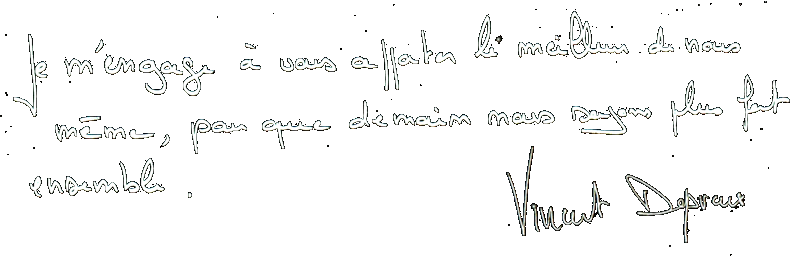 Je m'engage à vous apporter le meilleur de nous
même, pour que demain nous soyons plus fort
ensemble.
Vincent